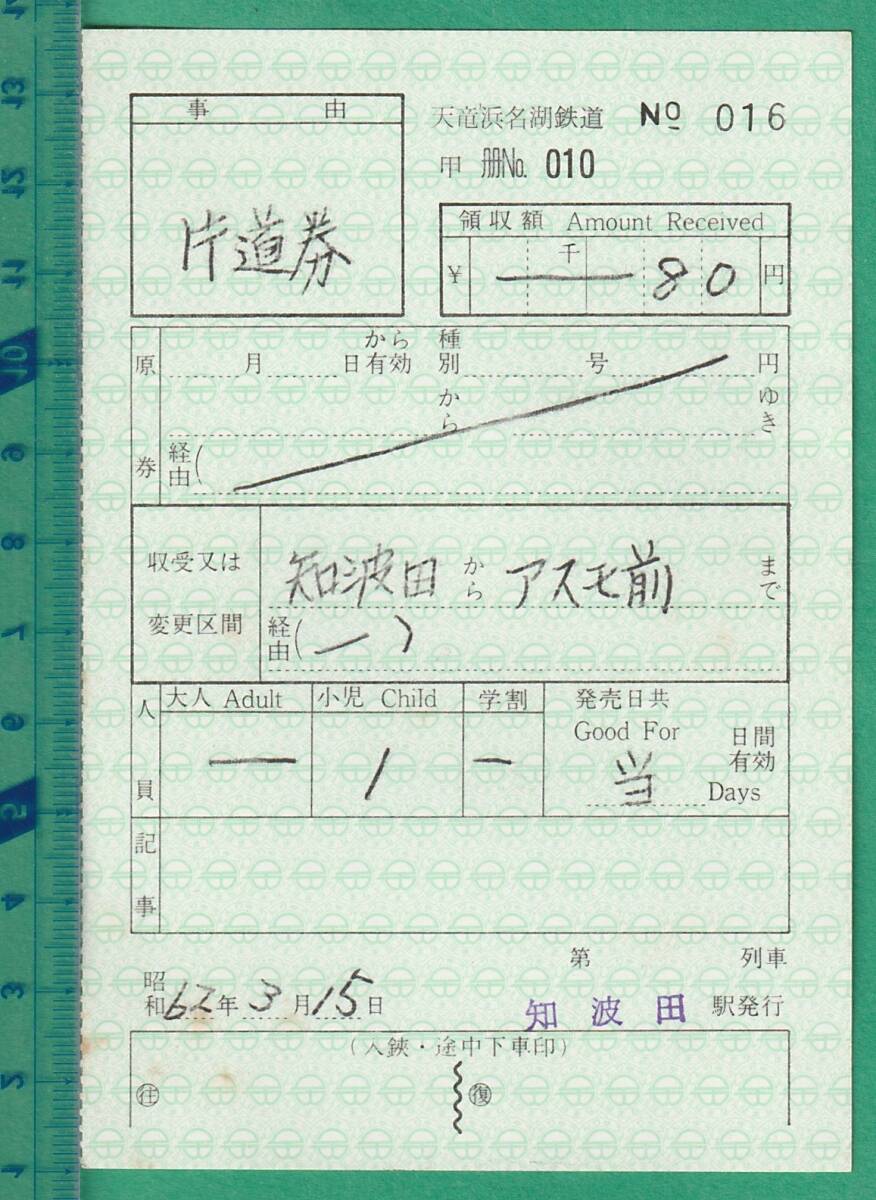 事 由
片道券
天竜浜名湖鉄道 No 016
甲 冊No. 010
領収額 Amount Received
¥ 千 80 円
原券
月 日から有効 種別 号 円
から ゆき
経由(
収受又は変更区間
知波田 から アスモ前 まで
経由(ー)
人員
大人 Adult 小児 Child 学割
ー 1 ー
発売日共
Good For 日間有効
当 Days
記事
第 列車
昭和62年3月15日
知波田 駅発行
(入鋏・途中下車印)
往 復
13
12
11
10
9
8
7
6
5
4
3
2
1